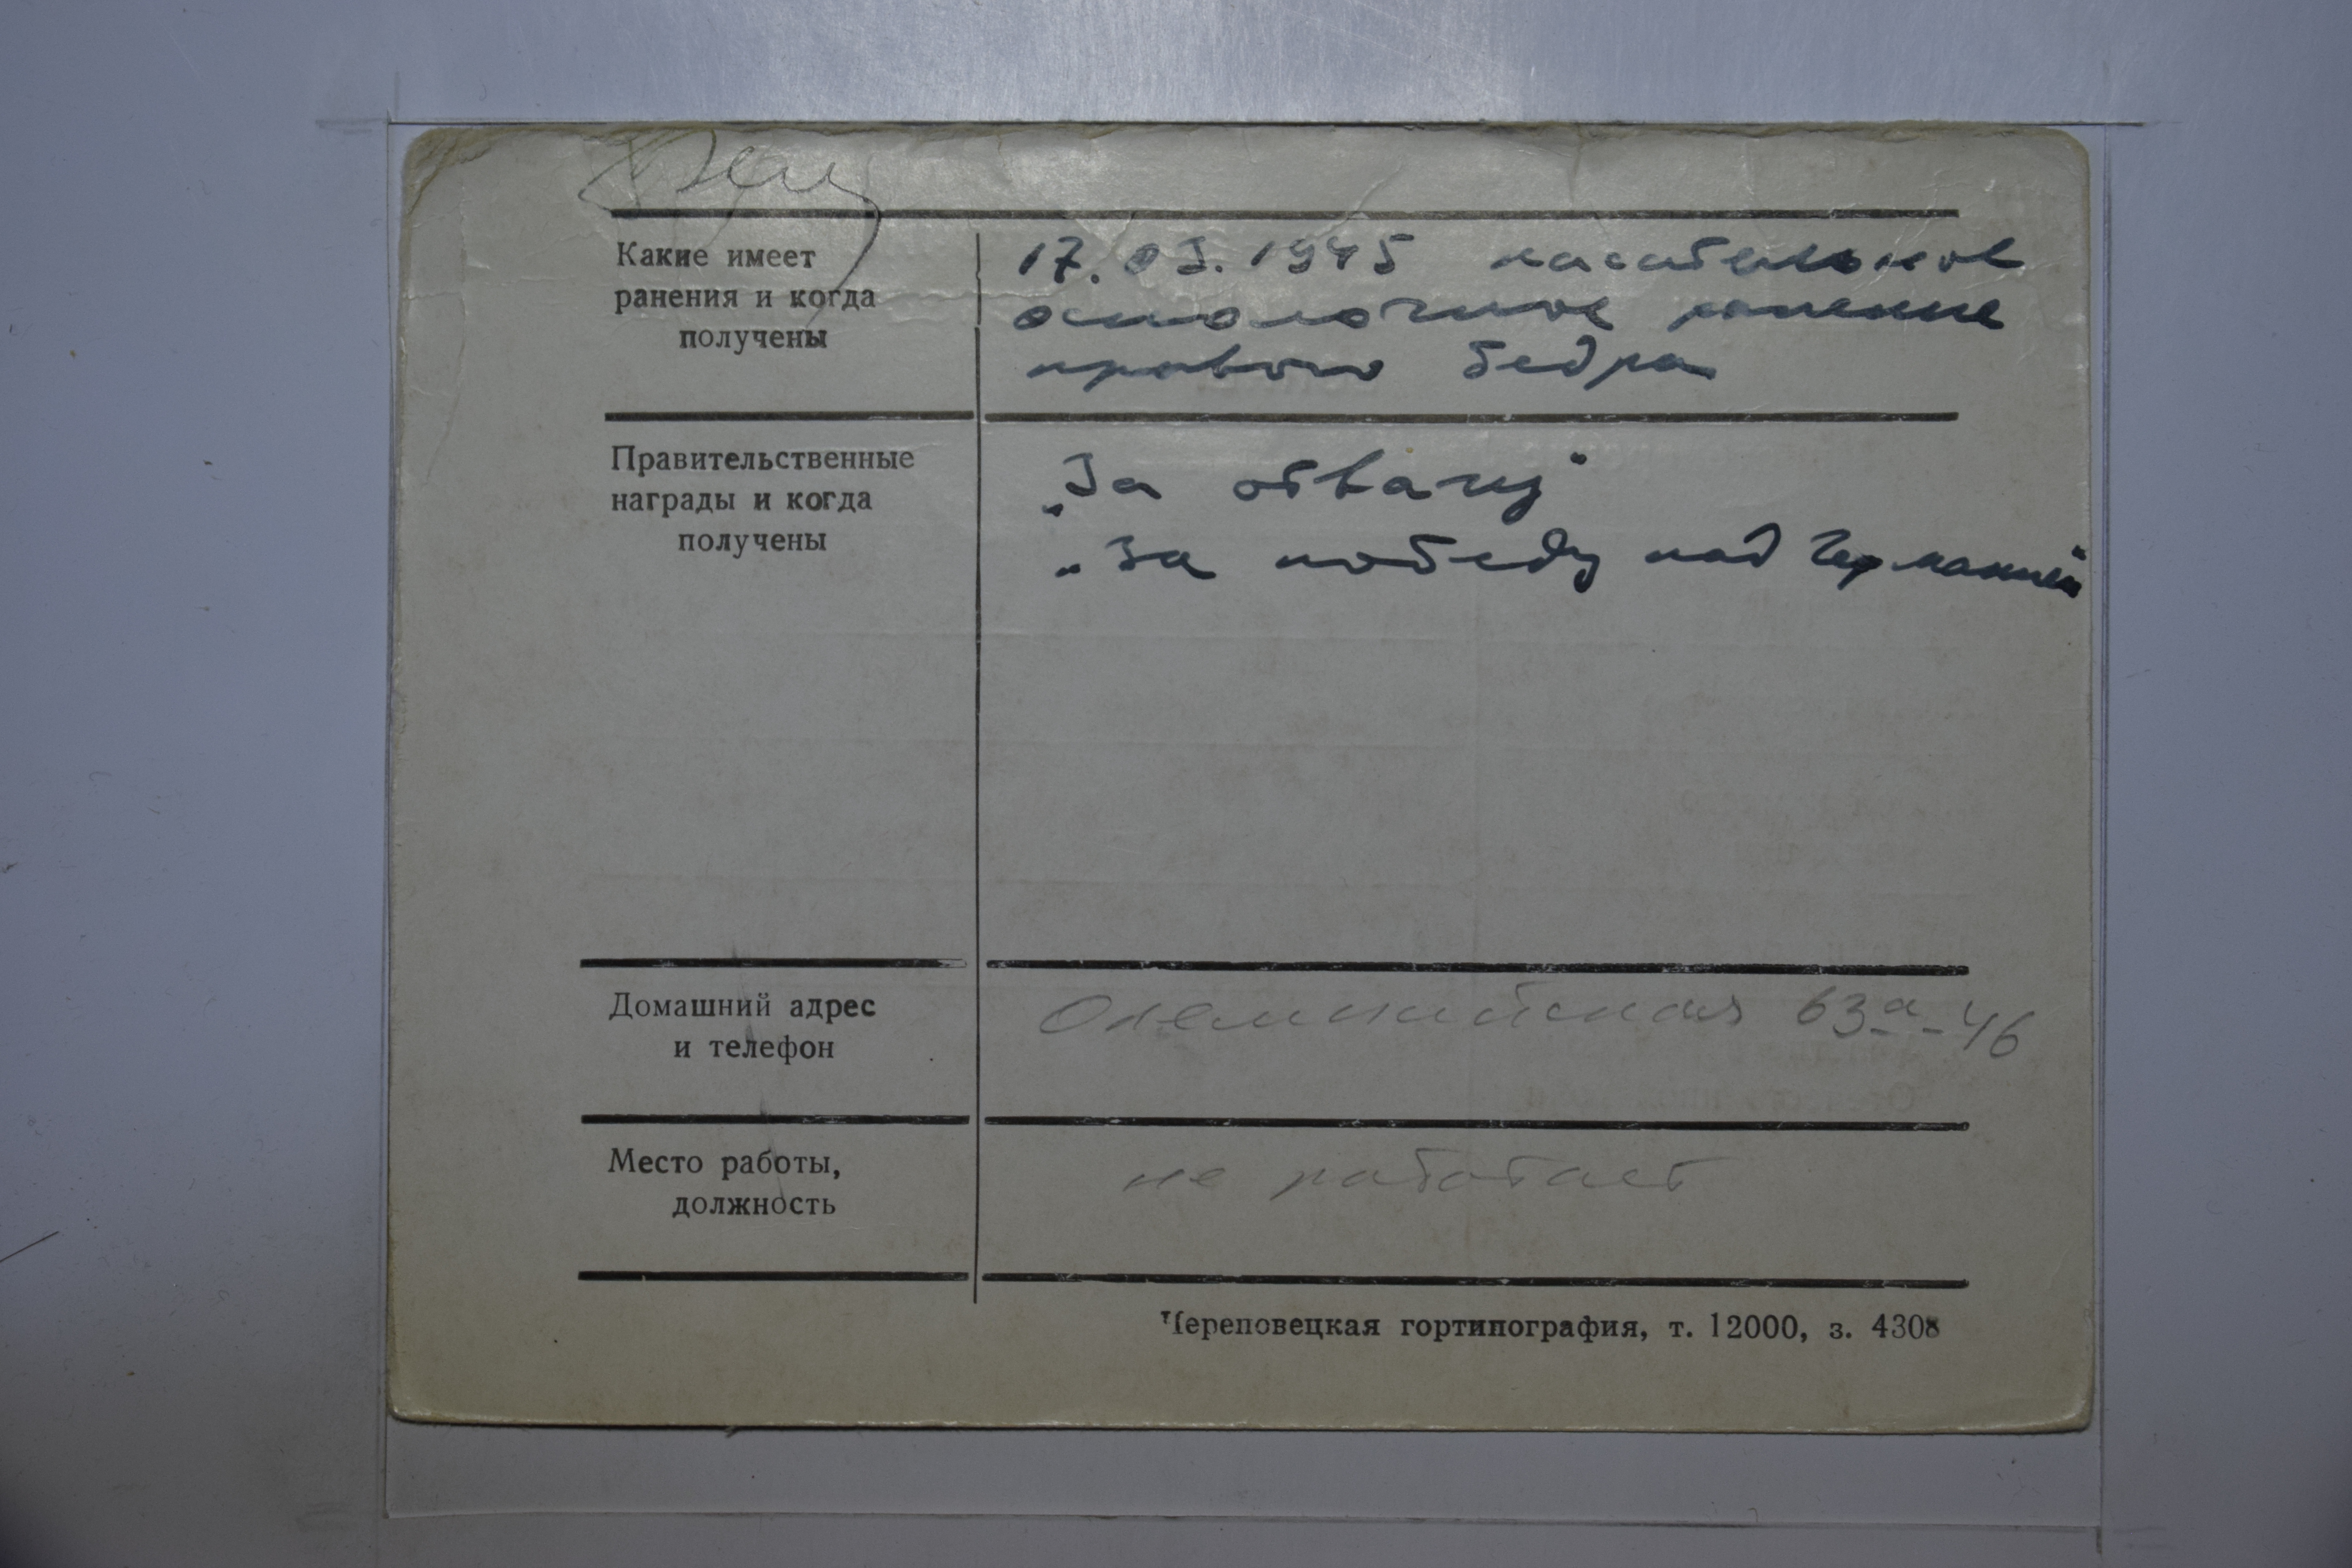 Какие имеет
ранения и когда
получены
17.03.1945 касательное
осколочное ранение
правого бедра
Правительственные
награды и когда
получены
„За отвагу"
„За победу над Германией"
Домашний адрес
и телефон
Олимпийская 63а-46
Место работы,
должность
не работает
Череповецкая гортипография, т. 12000, з. 4308